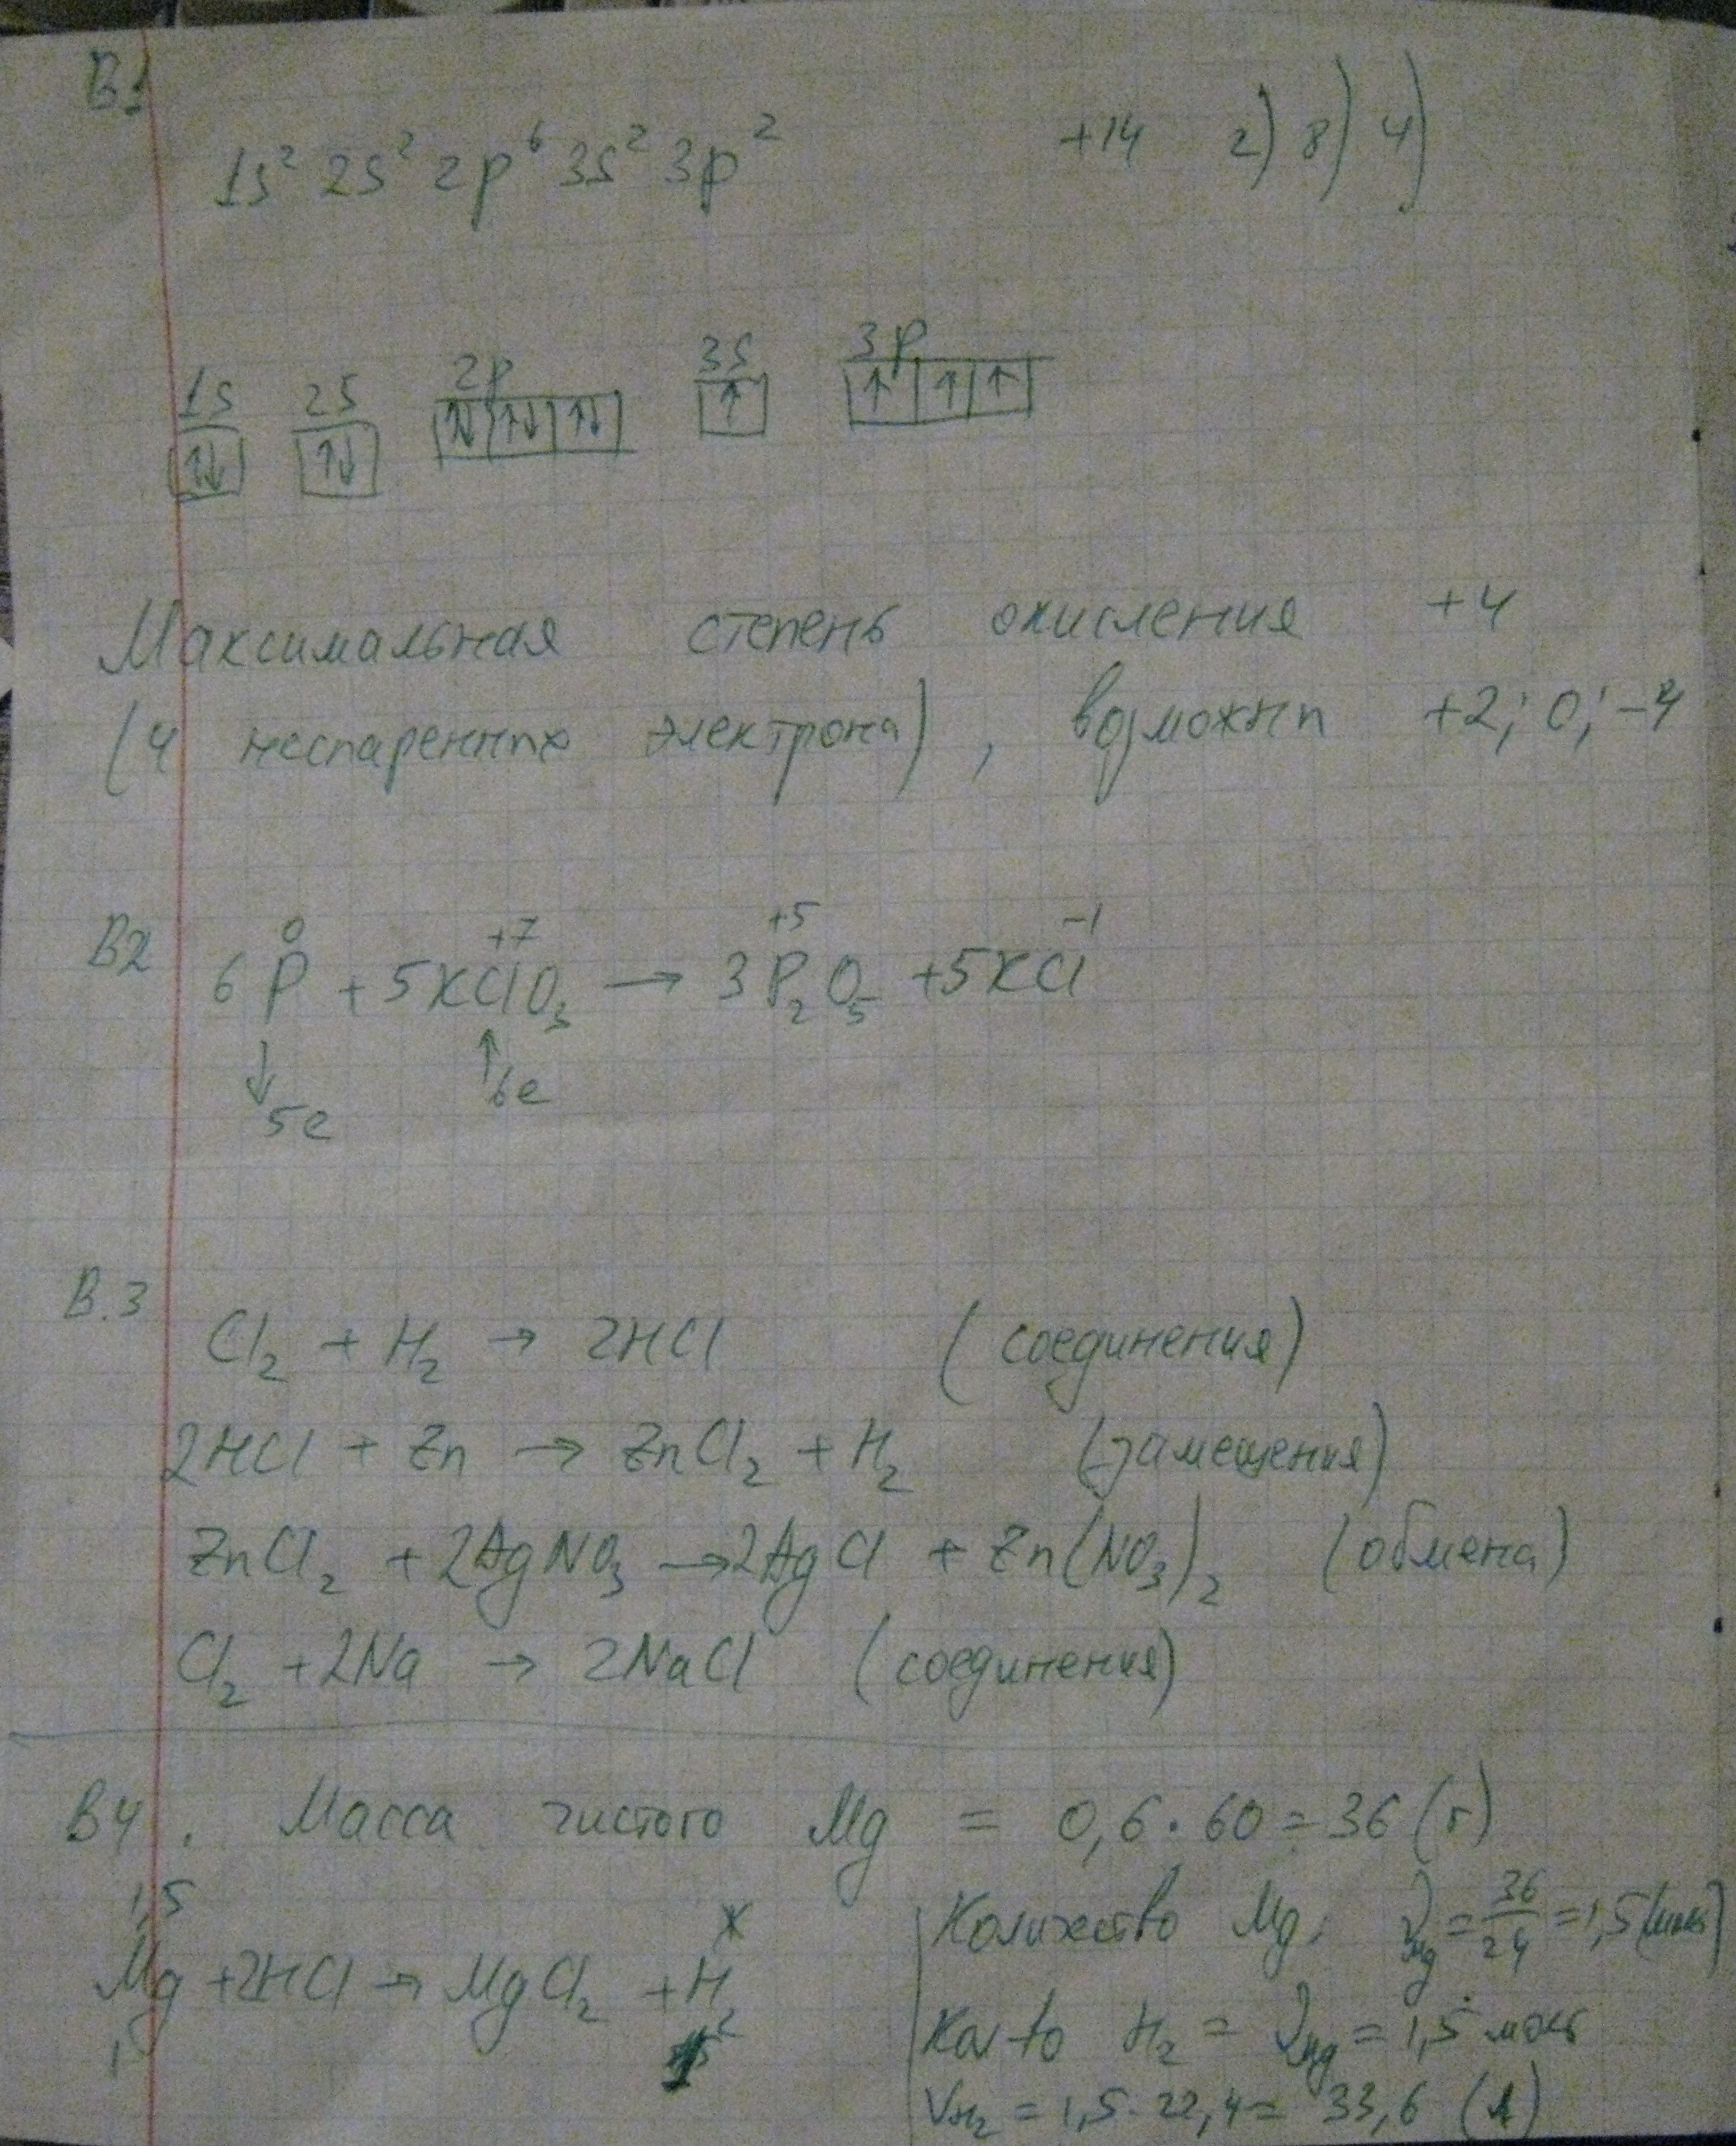 В1
1s² 2s² 2p⁶ 3s² 3p² +14 2) 8) 4)
1s 2s 2p 3s 3p
↑↓ ↑↓ ↑↓ ↑↓ ↑↓ ↑ ↑ ↑ ↑
Максимальная степень окисления +4
(4 неспаренных электрона), возможны +2; 0; -4
0 +7 +5 -1
В2 6P + 5KClO₃ → 3P₂O₅ + 5KCl
↓ 5e ↑ 6e
В.3
Cl₂ + H₂ → 2HCl (соединения)
2HCl + Zn → ZnCl₂ + H₂ (замещения)
ZnCl₂ + 2AgNO₃ → 2AgCl + Zn(NO₃)₂ (обмена)
Cl₂ + 2Na → 2NaCl (соединения)
В4. Масса чистого Mg = 0,6·60 = 36 (г)
1,5 x
Mg + 2HCl → MgCl₂ + H₂
1
Количество Mg: ν Mg = 36/24 = 1,5 (моль)
Кол-во H₂ = ν Mg = 1,5 моль
V H₂ = 1,5·22,4 = 33,6 (л)